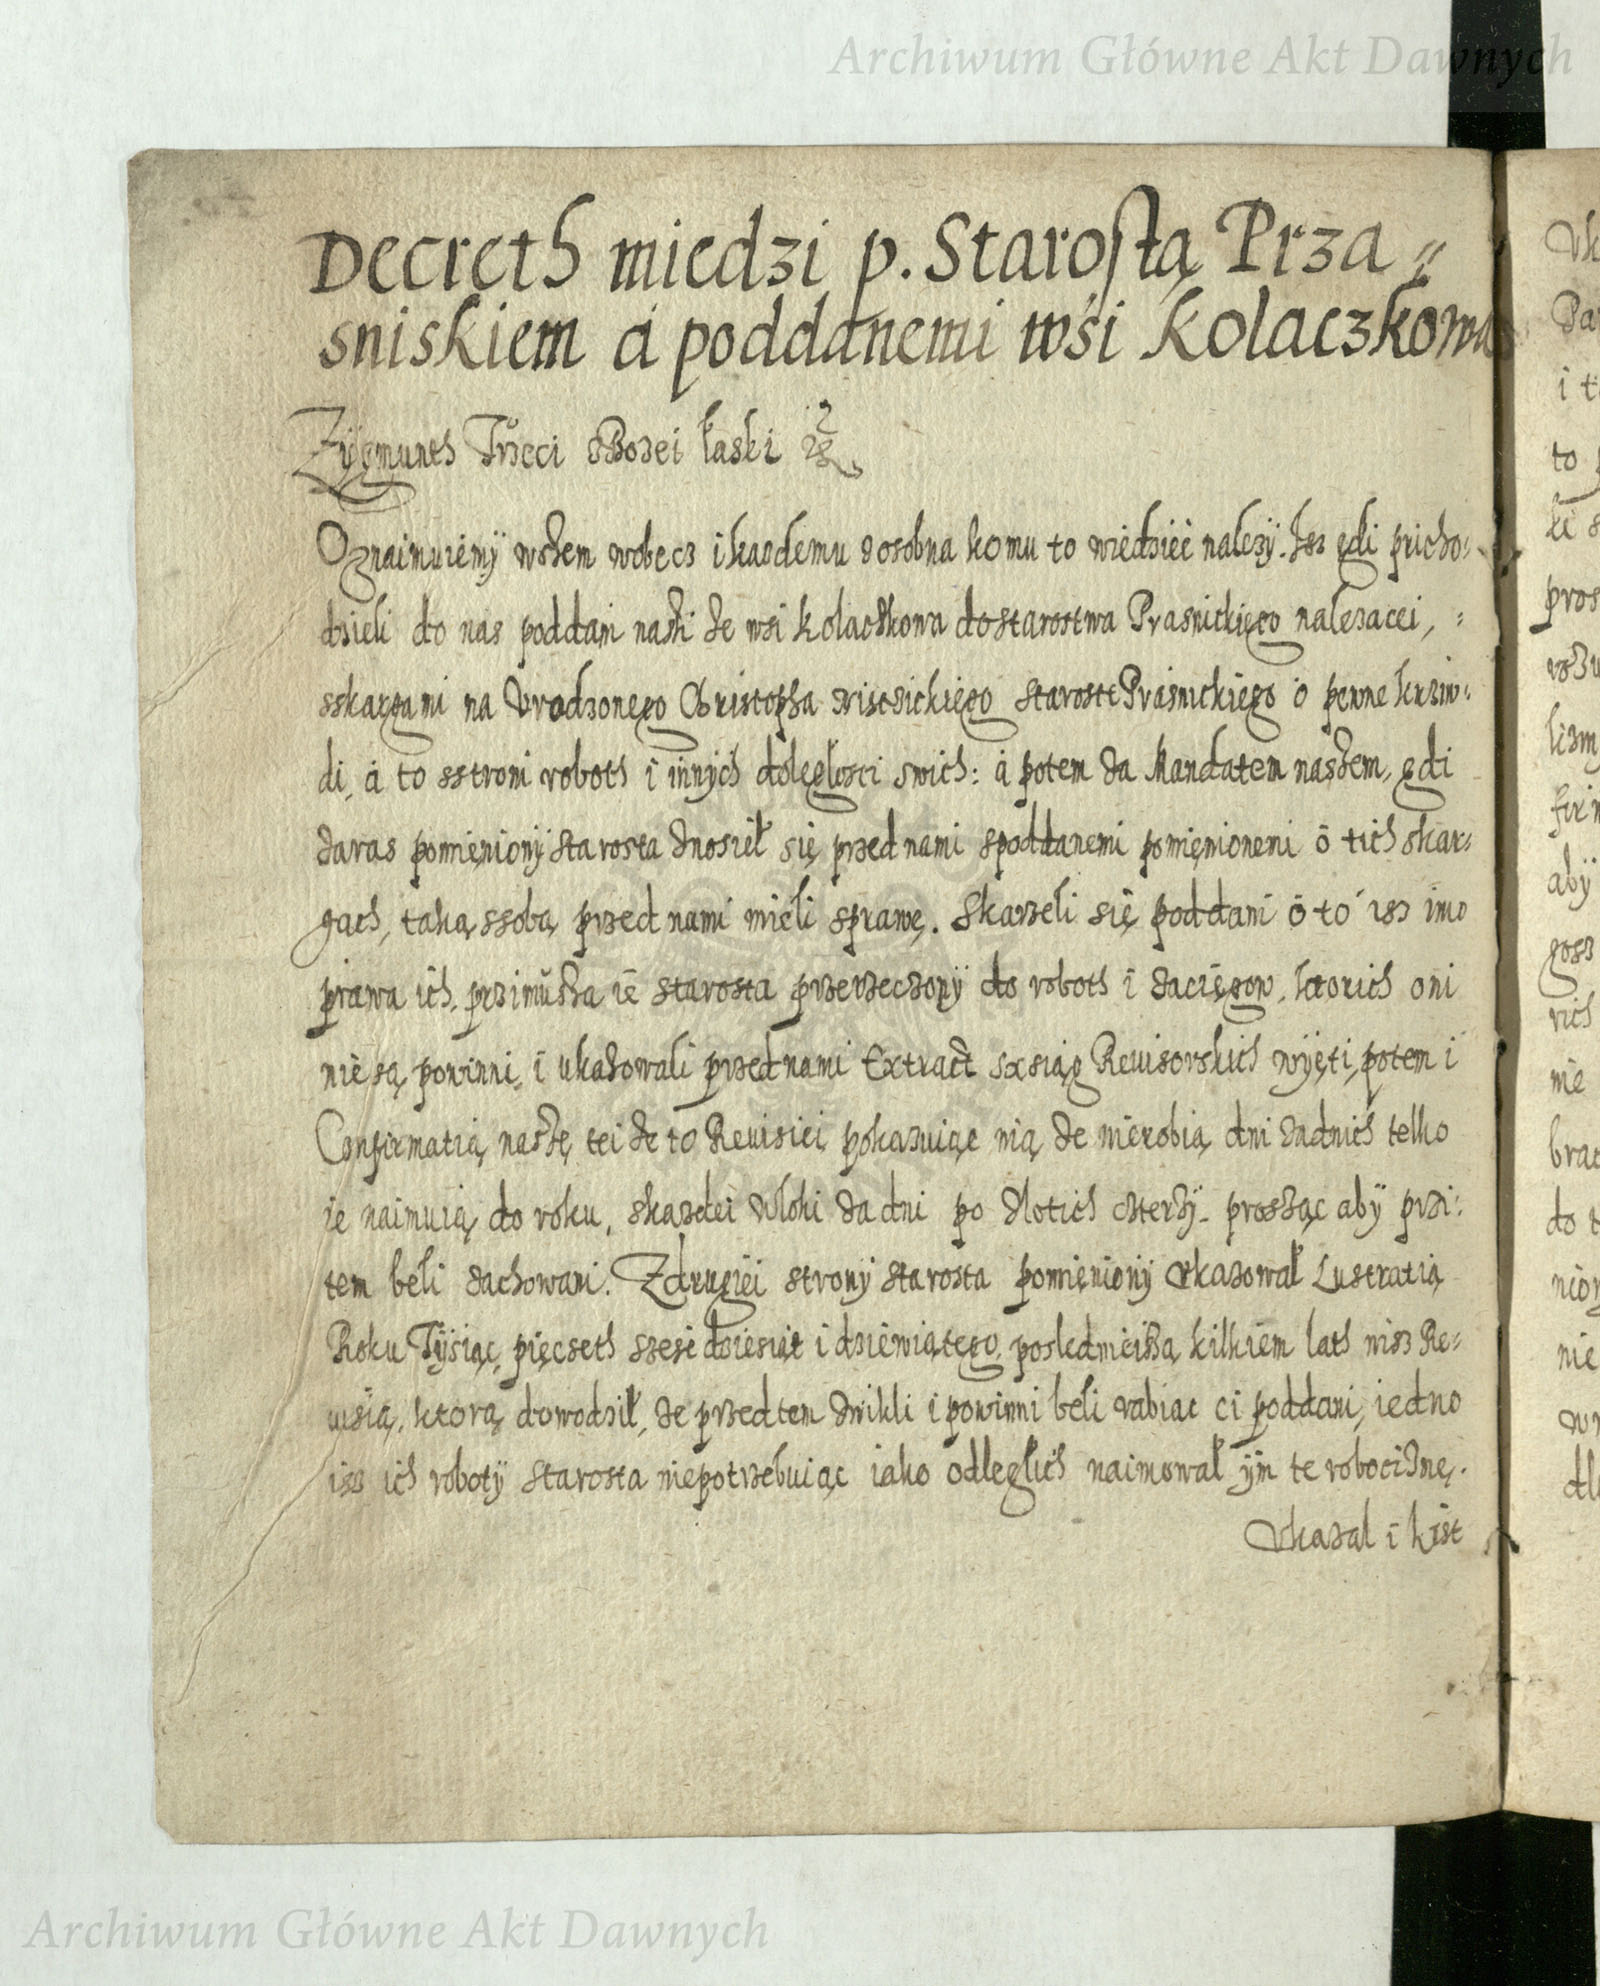 Archiwum Główne Akt Dawnych
Decreth miedzi p. Starostą Prza=
sniskiem á poddanemi wśi Kolaczkowa
Zygmunth Trzeci zBozei łaski
Oznaimuiemÿ wszem wobecz i kazdemu zosobna komu to wiedziec nalezÿ. Isz gdi pricho=
dzieli do nas poddani naszi ze wsi Kolaczkowa do starostwa Prasnickiego nalezacei,
sskargami na Vrodzonego Christopha staroste Prasnickiego o pewne krziw=
di, á to sstroni roboth i innÿch dolęglosci swich: á potem za Mandatem naszem, gdi
zaras pomięnionÿ starosta znosieł się przed nami spoddanemi pomięnionemi o tich skar=
gach, taką ssobą przed nami mieli sprawę. Skarzeli się poddani o to isz imo
prawa ich, przimusza ie starosta przerzeczonÿ do roboth i zacięgow, ktorich oni
nie są powinni, i ukazowali przed nami Extract sxsiąg Reuisorskich wÿięti, potem i
Confirmatią naszę tei ze to Reuisiei pokazuiąc nią ze nierobią dni zadnich telko
ie naimuią do roku, skazdei wloki za dni po zlotich czterzÿ. prosząc abÿ przi=
tem beli zachowani. Zdrugiei stronÿ starosta pomięnionÿ vkazowal Lustratią
Roku Tÿsiąc, pięcseth szesc dziesiąt i dziewiątego, poslednieiszą kilkiem lath nisz Re=
uisią, ktorą dowodził, ze przedtem zwikli i powinni beli rabiac ci poddani, iedno
isz ich robotÿ starosta niepotrzebuiąc iako odleglich naimował ÿm te robociznę.
Vkazal i kist
Archiwum Główne Akt Dawnych